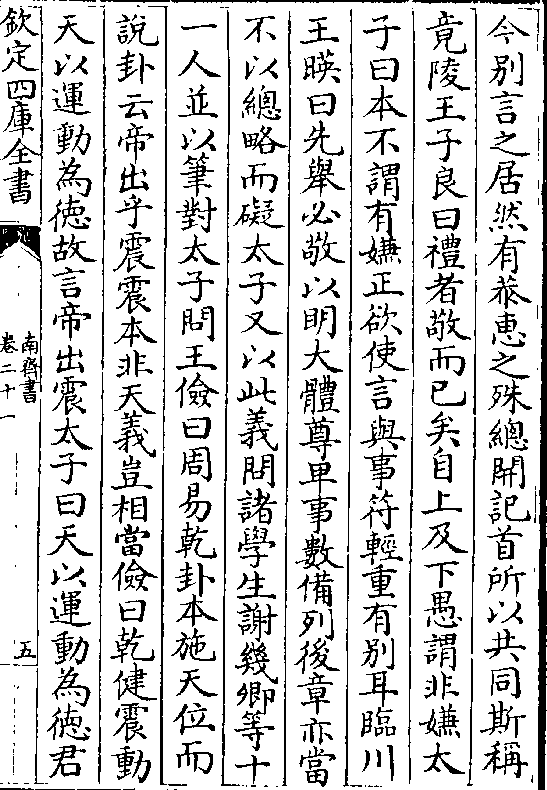 今别言之居然有恭惠之殊緫開記首所以共同斯稱
竟陵王子良曰禮者敬而已矣自上及下愚謂非嫌太
子曰本不謂有嫌正欲使言與事符輕重有别耳臨川
王暎曰先舉必敬以明大體尊卑事數備列後章亦當
不以總略而礙太子又以此義問諸學生謝幾卿等十
一人並以筆對太子問王儉曰周易乾卦本施天位而
說卦云帝出乎震震本非天義豈相當儉曰乾健震動
天以運動為德故言帝出震太子曰天以運動為德君
欽定四庫全書
南齊書
卷二十一
五